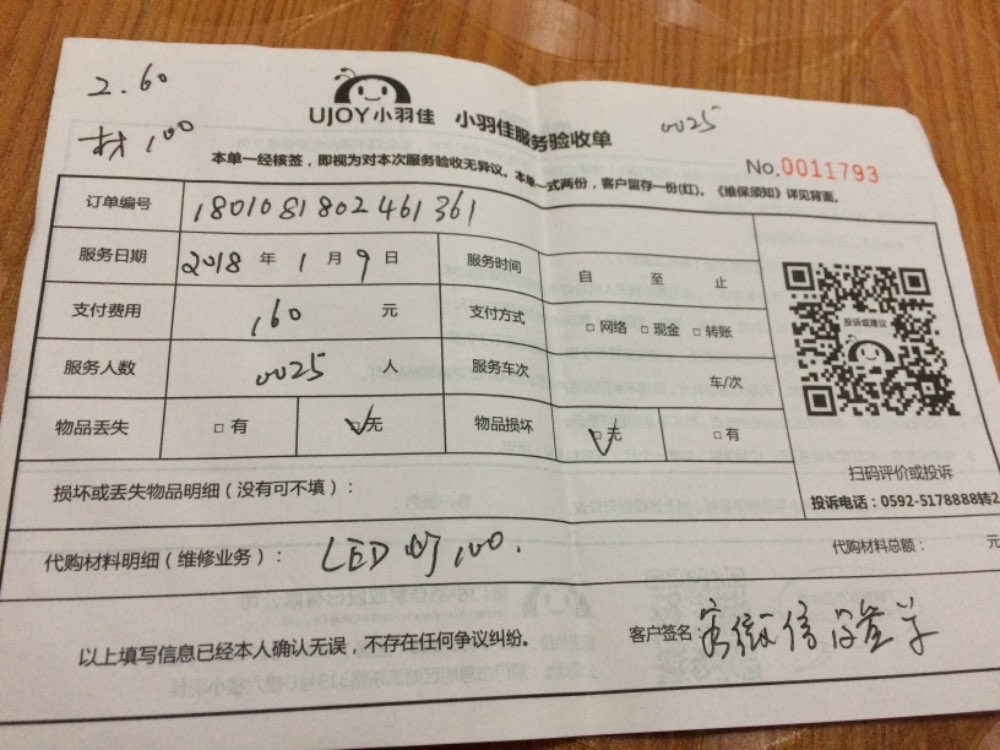 2.60
材100
UJOY小羽佳 小羽佳服务验收单
0025
本单一经核签，即视为对本次服务验收无异议。本单一式两份，客户留存一份(红)。《维保须知》详见背面。
No.0011793
订单编号 180108180246 1361
服务日期 2018 年 1 月 9 日 服务时间 自 至 止
支付费用 160 元 支付方式 □ 网络 □ 现金 □ 转账
服务人数 0025 人 服务车次 车/次
物品丢失 □ 有 ☑无 物品损坏 ☑无 □ 有
投诉或建议
扫码评价或投诉
投诉电话：0592-5178888转2
损坏或丢失物品明细（没有可不填）：
代购材料明细（维修业务）： LED灯100. 代购材料总额： 元
以上填写信息已经本人确认无误，不存在任何争议纠纷。 客户签名：客微信没签字